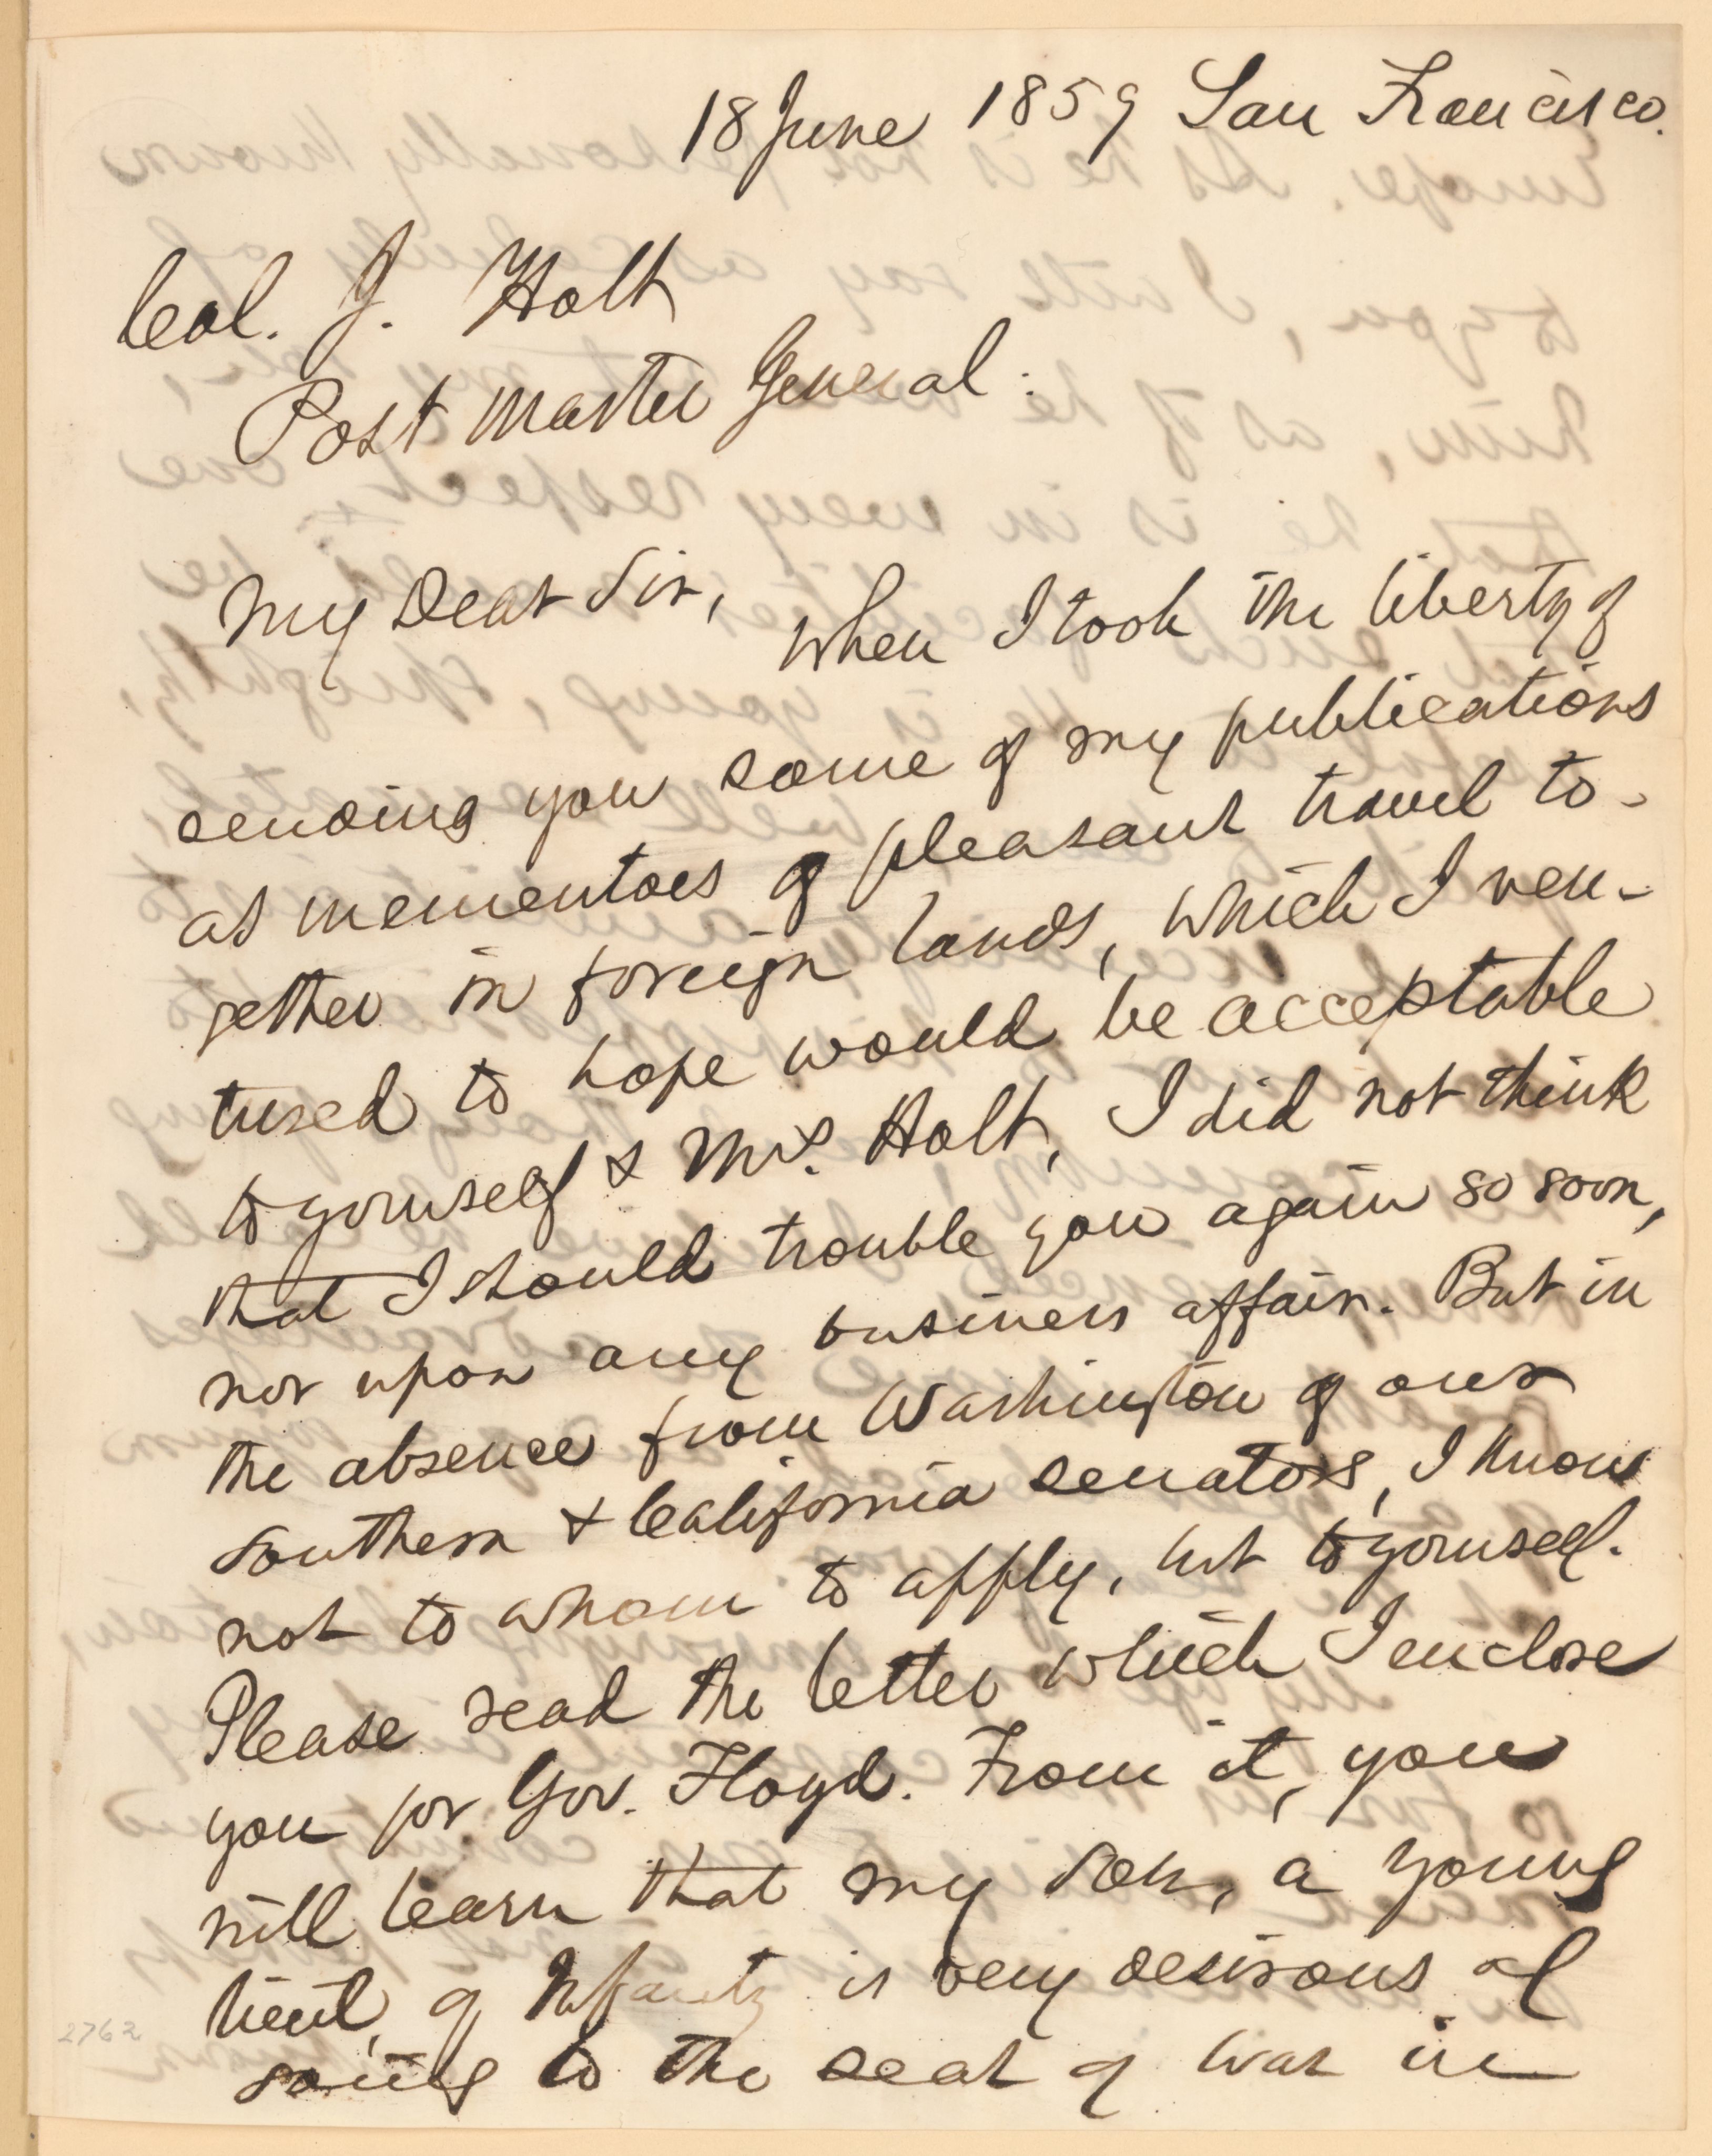 18 June 1859 San Francisco.
Col. J. Holt
Post Master General:
My Dear Sir,
When I took the liberty of
sending you some of my publications
as mementoes of pleasant travel to-
gether in foreign lands, which I ven-
tured to hope would be acceptable
to yourself & Mrs. Holt, I did not think
that I should trouble you again so soon,
nor upon any business affair. But in
the absence from Washington of our
Southern & California senators, I know
not to whom to apply, but to yourself.
Please read the letter which I enclose
you for Gov. Floyd. From it, you
will learn that my son, a young
Lieut. of Infantry is very desirous of
going to the seat of war in
2762